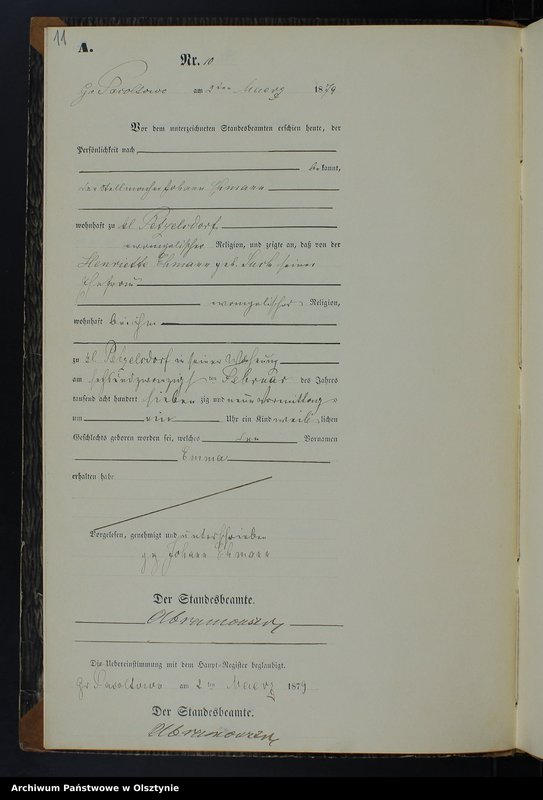 11
A.
Nr. 10
Gr. Pacoltowo am 2ten Maerz 1879
Vor dem unterzeichneten Standesbeamten erschien heute, der
Persönlichkeit nach
bekannt,
der Stellmacher Johann Ehmann
wohnhaft zu kl Petzelsdorf
evangelischer Religion, und zeigte an, daß von der
Henriette Ehmann geb. seiner
Ehefrau
evangelischer Religion,
wohnhaft bei ihm
zu kl. Petzelsdorf in seiner Wohnung
am sechsundzwanzigsten Februar des Jahres
tausend acht hundert sieben zig und neun Vormittags
um ein Uhr ein Kind weiblichen
Geschlechts geboren worden sei, welches den Vornamen
Emma
erhalten habe
Vorgelesen, genehmigt und unterschrieben
gez Johann Ehmann
Der Standesbeamte.
Die Uebereinstimmung mit dem Haupt-Register beglaubigt.
Gr Pacoltowo am 2ten Maerz 1879
Der Standesbeamte.
Archiwum Państwowe w Olsztynie